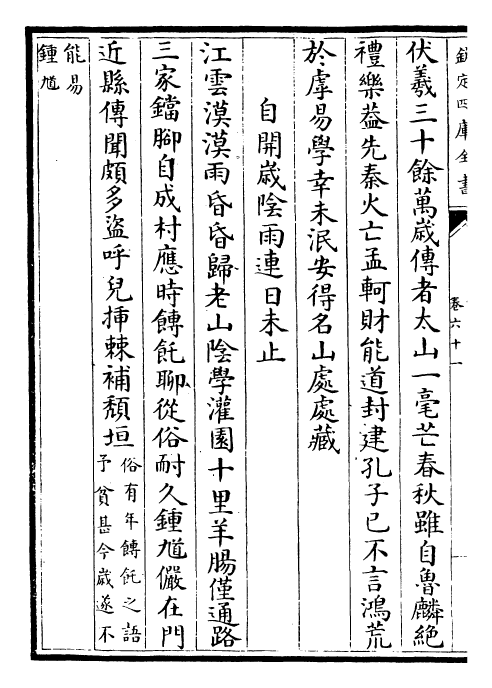 欽定四庫全書
卷六十一
伏羲三十餘萬歲傳者太山一毫芒春秋雖自魯麟絶
禮樂葢先秦火亡孟軻財能道封建孔子已不言鴻荒
於虖易學幸未泯安得名山處處藏
自開嵗陰雨連日未止
江雲漠漠雨昏昏歸老山陰學灌園十里羊腸僅通路
三家鐺腳自成村應時餺飥聊從俗耐久鍾馗儼在門
近縣傳聞頗多盜呼兒揷棘補頽垣俗有年餺飥之語
予貧甚今歲遂不
能易
鍾馗